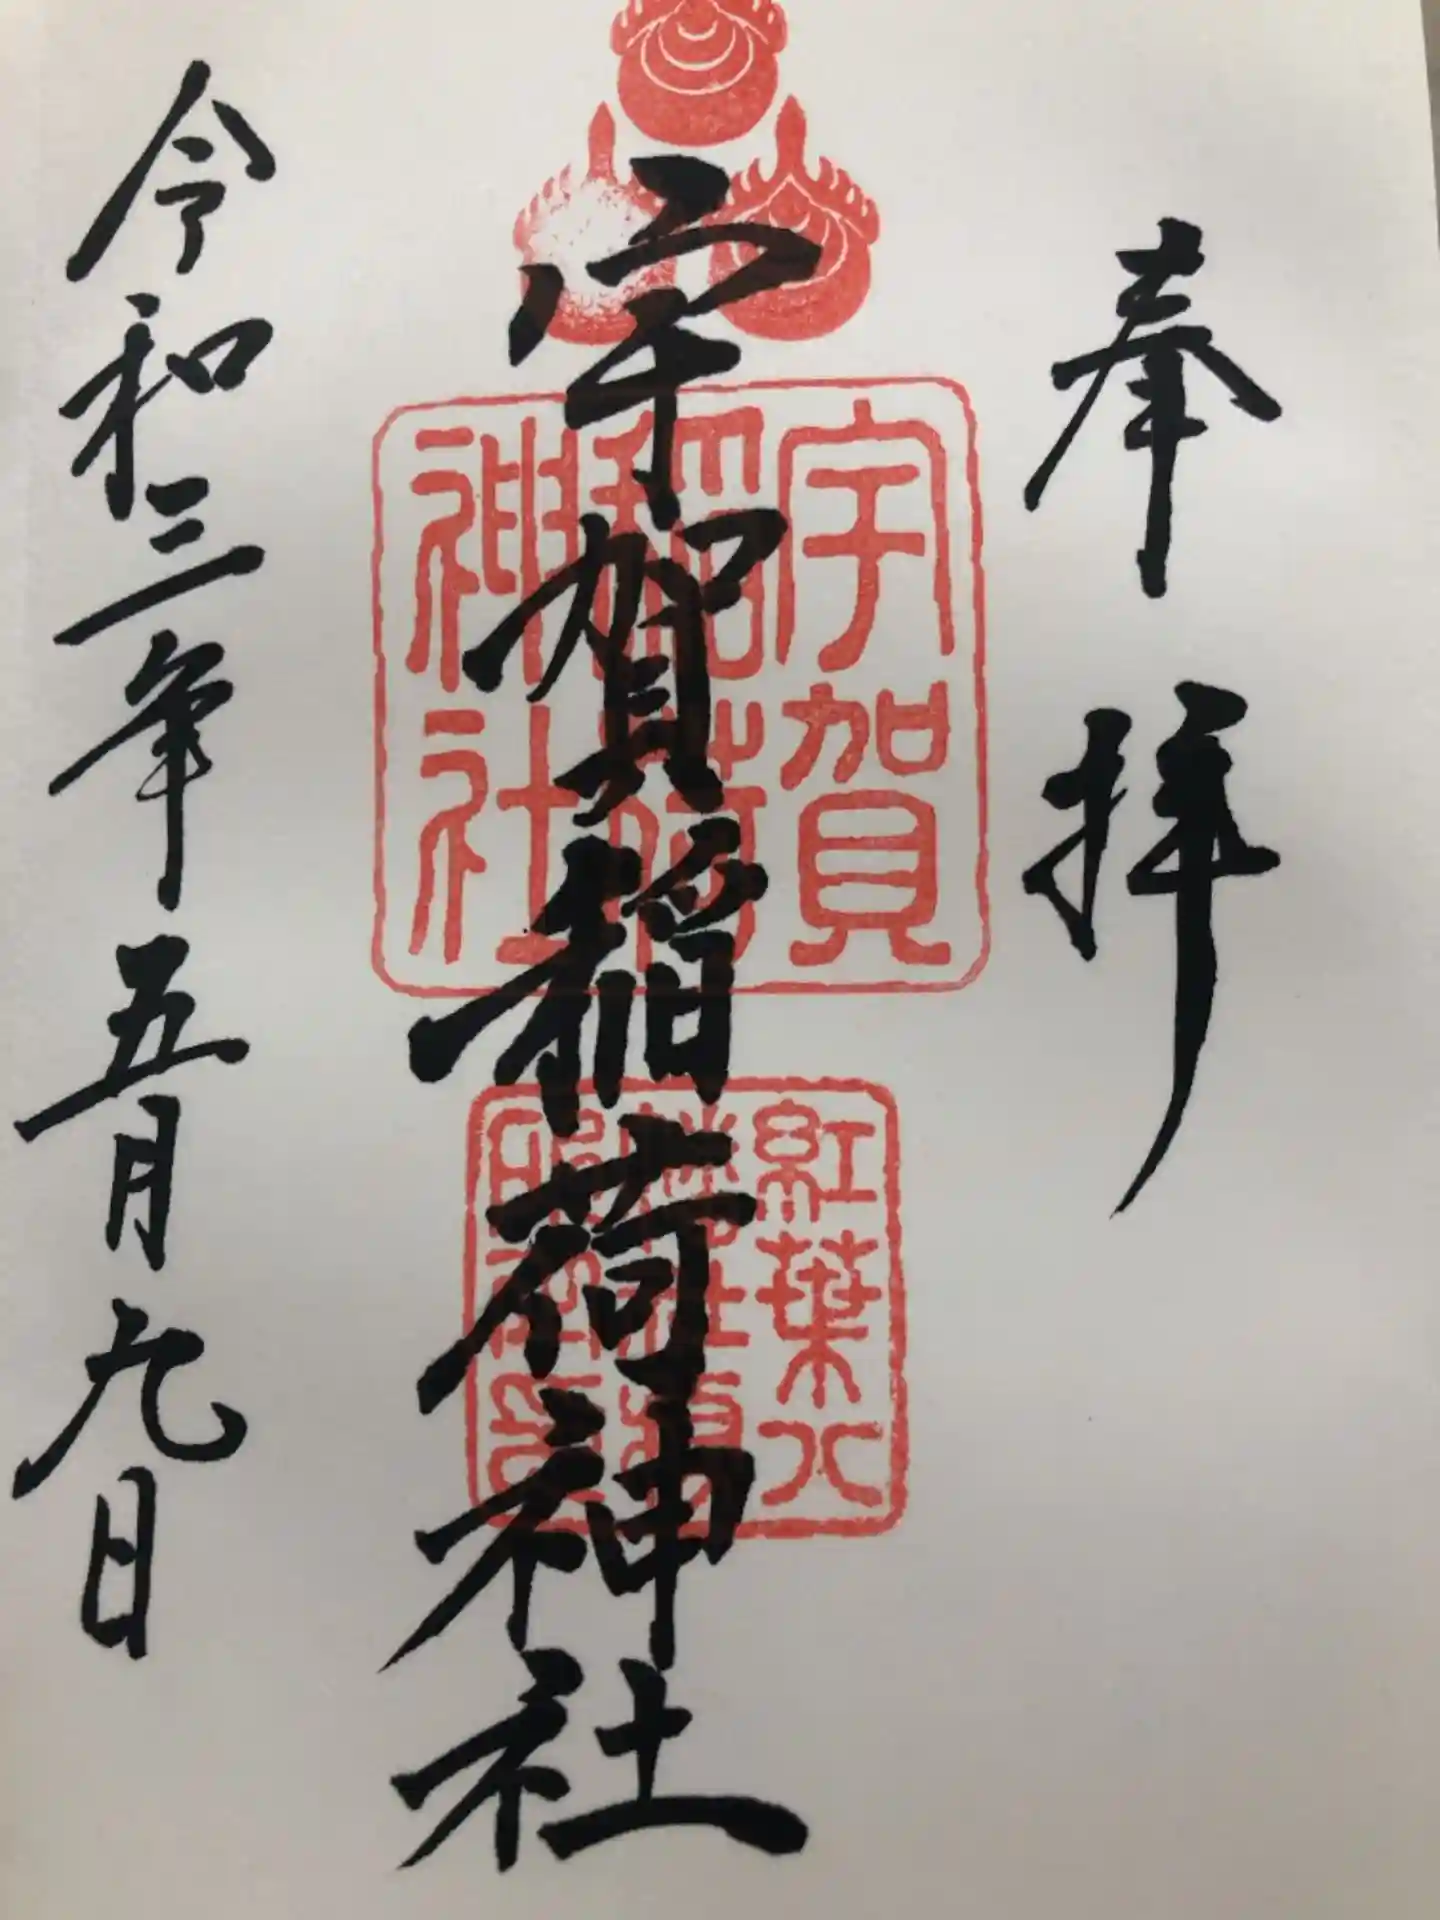 奉拝
宇賀稲荷神社
令和三年五月九日
宇賀
稲荷
神社
紅葉八